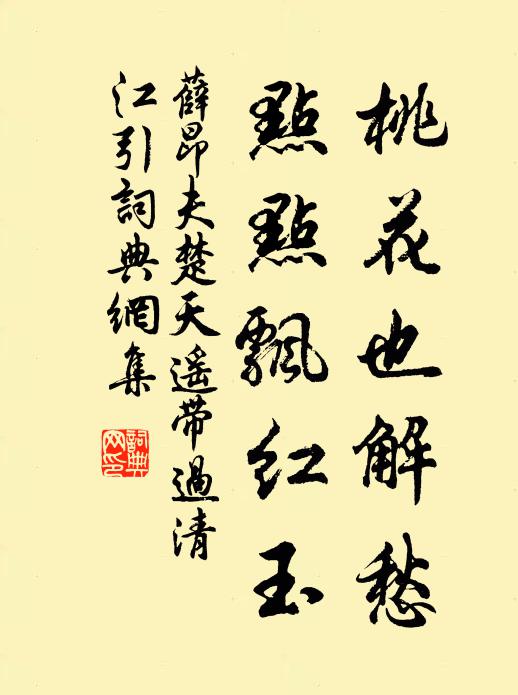 桃花也解愁
點點飄紅玉
薛昂夫楚天遥带過清
江引詞典網集
詞典
网印